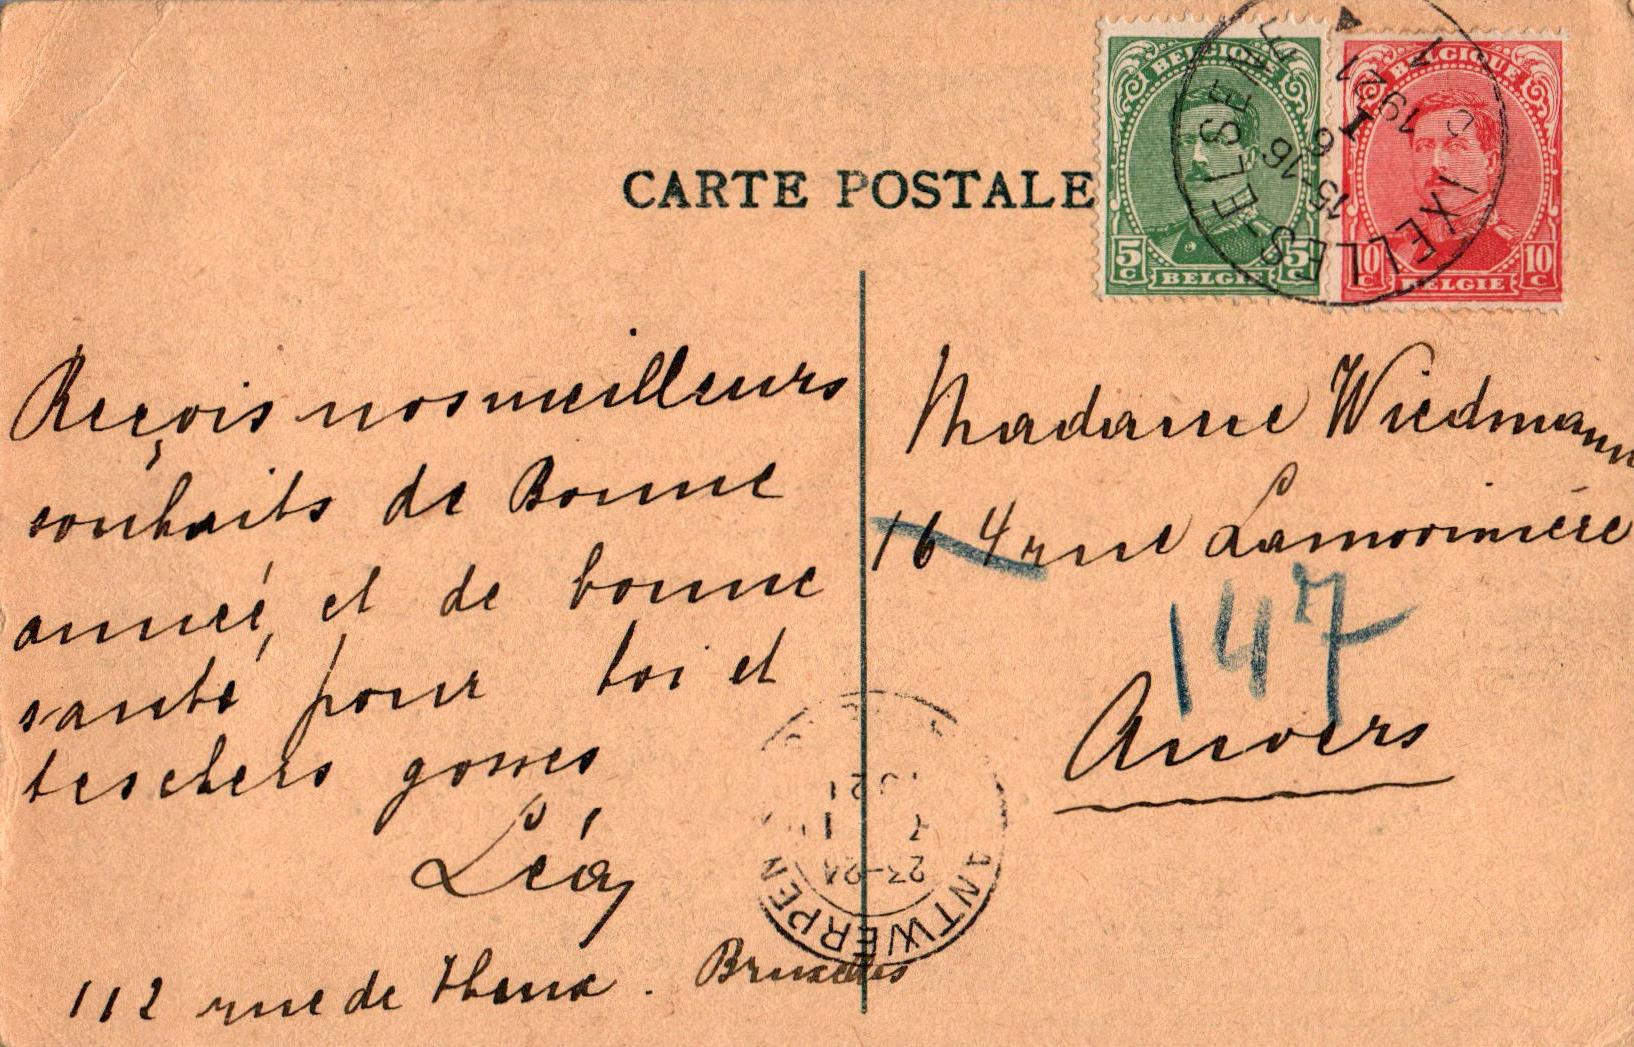 CARTE POSTALE
BELGIQUE
5 C
5 C
BELGIE
BELGIQUE
10 C
10 C
BELGIE
IXELLES-ELSENE
15-16
6 I
1921
Reçois nos meilleurs
souhaits de Bonne
année, et de bonne
santé, pour toi et
tes chers gosses
Léa
112 rue de Bruxelles
Madame Wiedmann
164 rue Lamorinière
147
Anvers
ANTWERPEN
23-24
7 I
1921